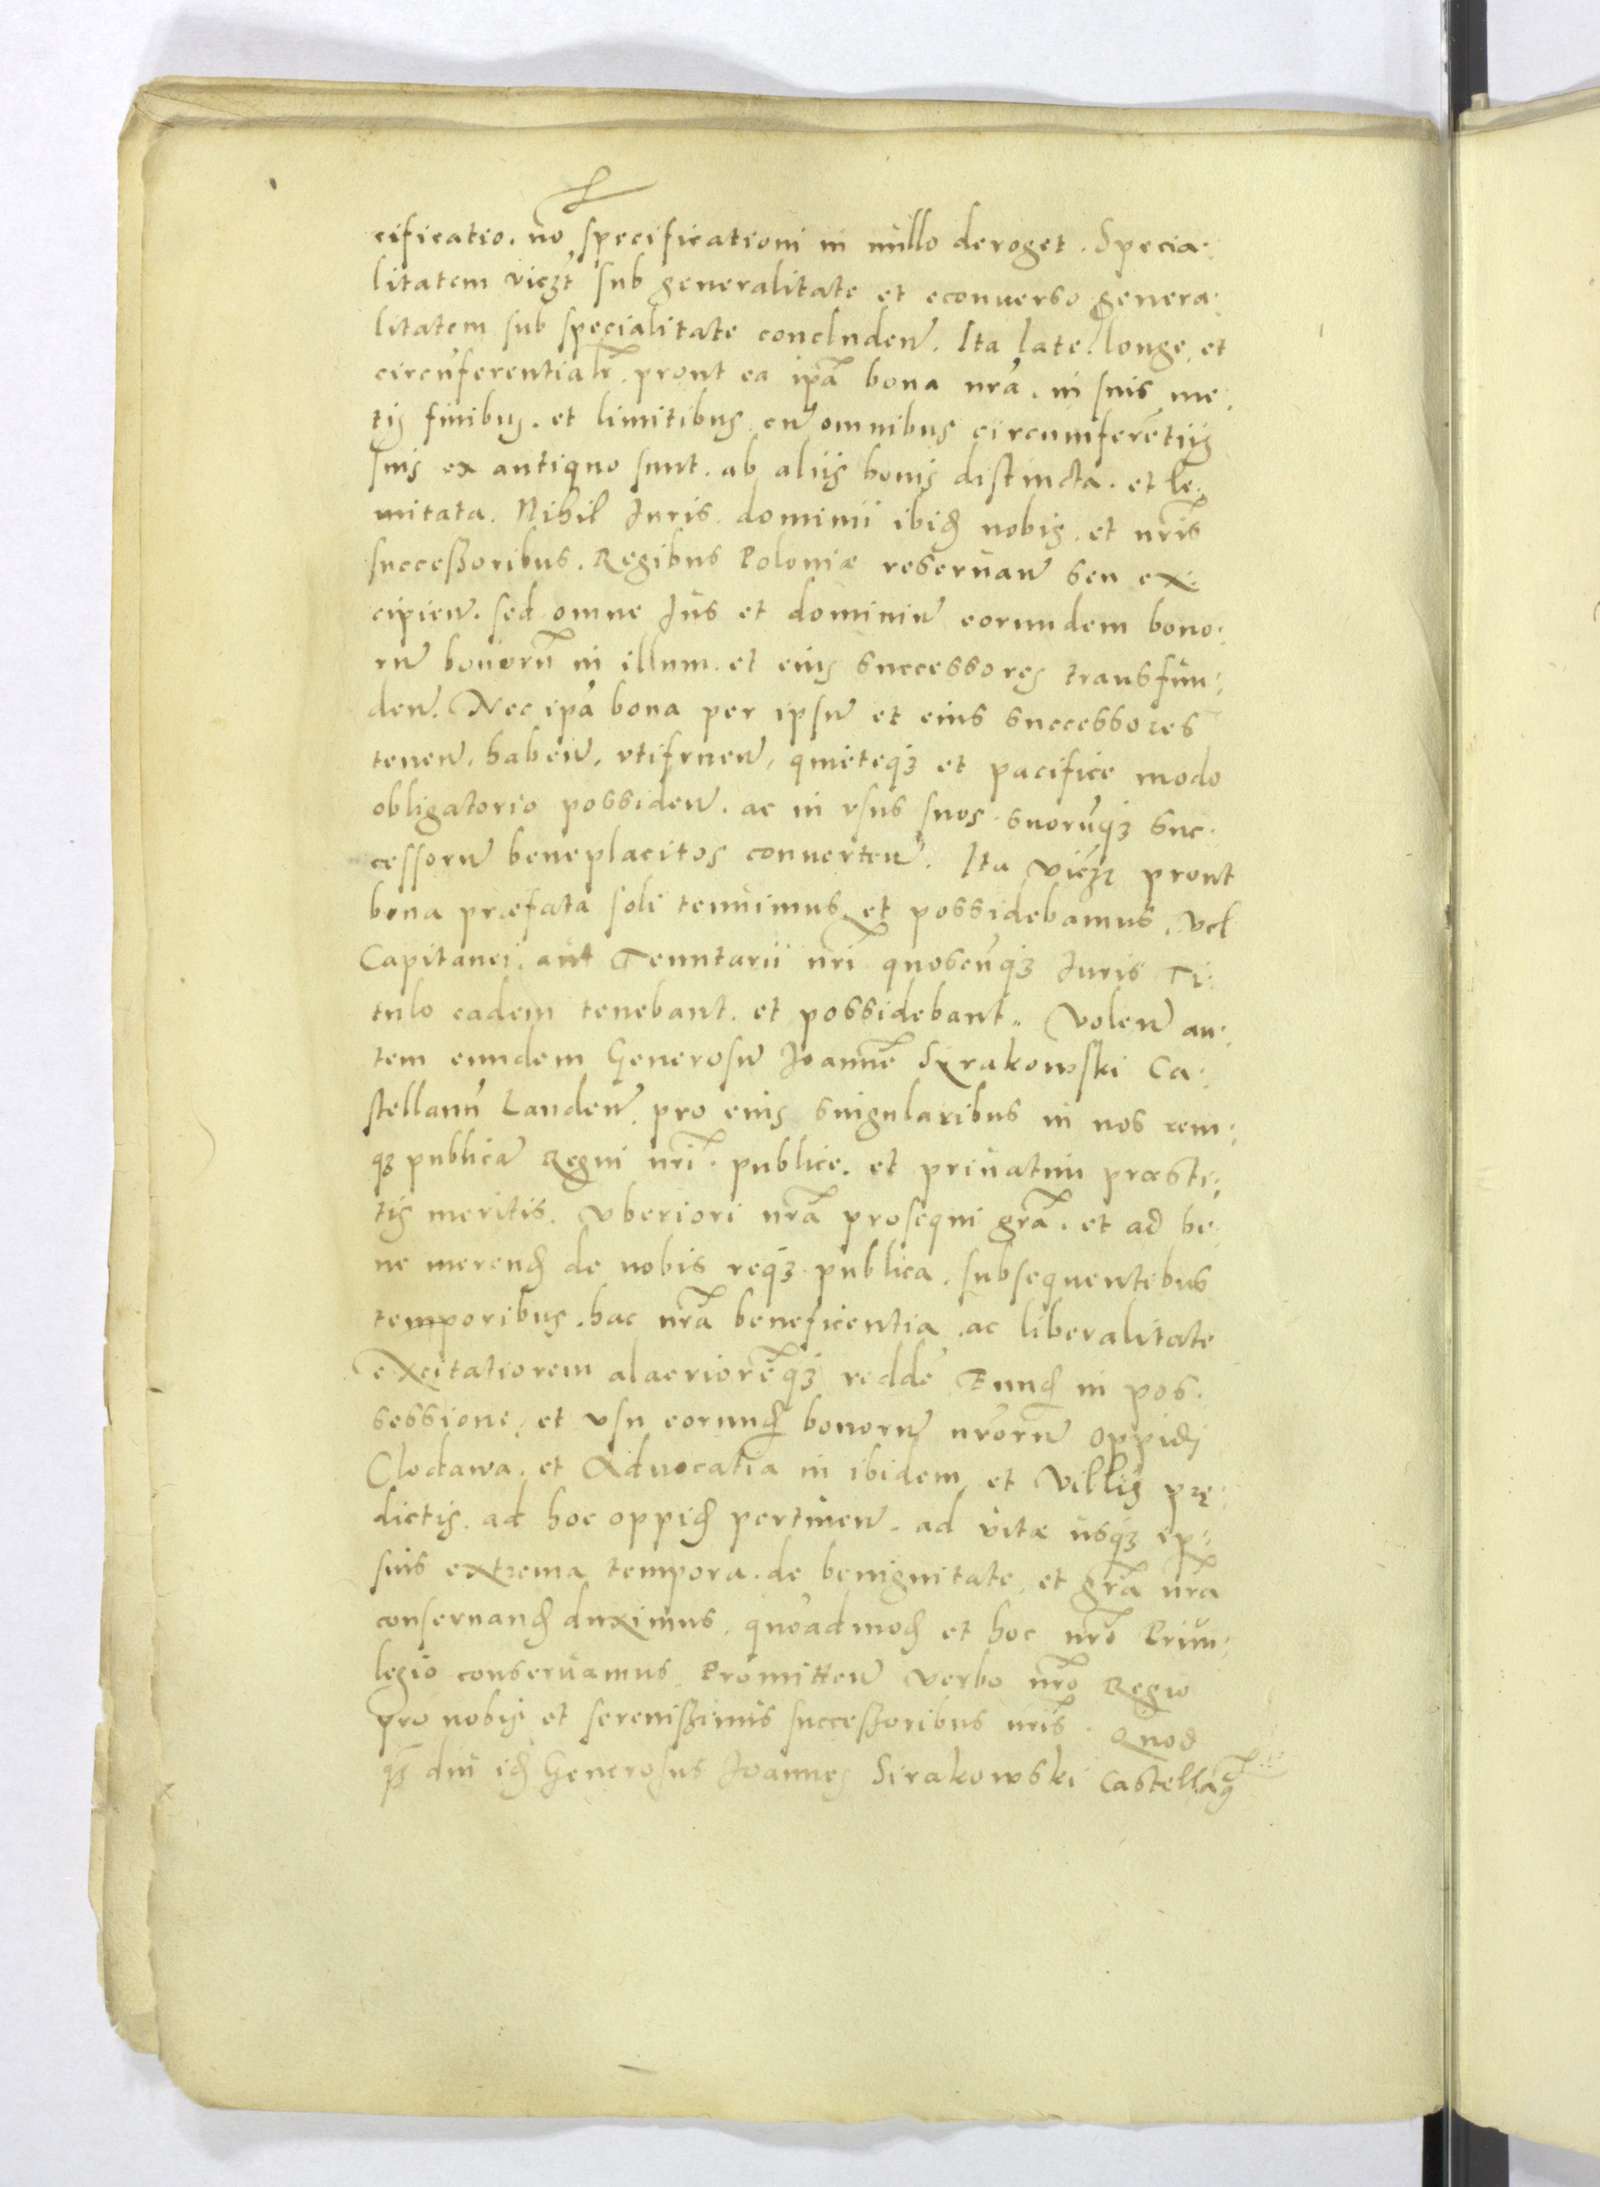 cificatio. nō specificationi in nullo deroget. Specia:
litatem vicʒt sub generalitate et econuerso genera:
litatem sub specialitate concluden̄. Ita late. longe et
circūferentialr̄. prout ea ip̄a bona nr̄a. in suis me:
tis finibus. et limitibus cū omnibus circumferētijs
suis ex antiquo sunt. ab alijs bonis distincta. et le:
mitata. Nihil Juris. dominii ibid̄ nobis. et nr̄is
successoribus. Regibus Poloniæ reseruan̄ seu ex:
cipien̄. sed omne Jus et dominiū eorundem bono:
rū bonorū in illum. et eius successores transfun:
den̄. Nec ip̄a bona per ipsū et eius successores
tenen̄. haben̄. vtifruen̄. quieteqʒ et pacifice modo
obligatorio possiden̄. ac in vsus suos. suorūqʒ suc:
cessorū beneplacitos conuerten̄. Ita vicʒt prout
bona præfata soli tenuimus et possidebamus. vel
Capitanei. aut Tenutarii nr̄i quoscūqʒ Juris Ti:
tulo eadem tenebant. et possidebant. Volen̄ au:
tem eundem Generosū Joannē Syrakowski Ca:
stellanū Landen̄. pro eius singularibus in nos rem:
qʒ publicā Regni nr̄i. publice. et priuatim præsti:
tis meritis. Vberiori nr̄a prosequi gr̄a. et ad be:
ne merend̄ de nobis reqʒ publica. subsequentebus
temporibus. hac nr̄a beneficentia. ac liberalitate
excitatiorem alacriorēqʒ reddē Eund̄ in pos:
sessione. et vsu eorund̄ bonorū nr̄orū oppidi
Clodawa. et Aduocatia in ibidem et Villis præ:
dictis. ad hoc oppid̄ pertinen̄. ad vitæ usqʒ ip:
sius extrema tempora. de benignitate. et gr̄a nr̄a
conseruand̄ duximus. quoadmod̄ et hoc nr̄o Priui:
legio conseruamus. Promitten̄ verbo nr̄o Regio
pro nobis et serenissimis successoribus nr̄is. Quod
qʒ diu id̄ Generosus Joannes Sirakowski Castellan̄9